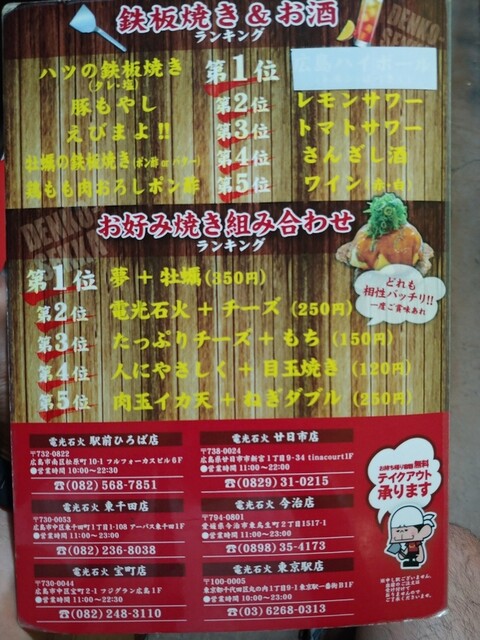 鉄板焼き＆お酒
ランキング
ハツの鉄板焼き
(タレ・塩)
第1位
豚もやし
第2位
レモンサワー
えびまよ!!
第3位
トマトサワー
牡蠣の鉄板焼き(ポン酢orバター)
第4位
さんざし酒
鶏もも肉おろしポン酢
第5位
ワイン(赤・白)
お好み焼き組み合わせ
ランキング
第1位 夢＋牡蠣(350円)
第2位 電光石火＋チーズ(250円)
第3位 たっぷりチーズ＋もち(150円)
第4位 人にやさしく＋目玉焼き(120円)
第5位 肉玉イカ天＋ねぎダブル(250円)
どれも
相性バッチリ!!
一度ご賞味あれ
電光石火 駅前ひろば店
〒732-0822
広島市南区松原町10-1 フルフォーカスビル6F
●営業時間 10:00～22:30
☎(082)568-7851
電光石火 東千田店
〒730-0053
広島市中区東千田町1丁目1-108 アーバス東千田1F
●営業時間 11:00～22:00
☎(082)236-8038
電光石火 宝町店
〒730-0044
広島市中区宝町2-1 フジグラン広島4F
●営業時間 10:00～22:00
☎(082)248-3110
電光石火 廿日市店
〒738-0024
広島県廿日市市新宮1丁目9-34 tinacourt1F
●営業時間 11:00～22:00
☎(0829)31-0215
電光石火 今治店
〒794-0801
愛媛県今治市東鳥生町2丁目1517-1
●営業時間 11:00～22:00
☎(0898)35-4173
電光石火 東京駅店
〒100-0005
東京都千代田区丸の内1丁目9-1 東京駅一番街B1F
●営業時間 11:00～23:00
☎(03)6268-0313
お持ち帰り容器無料
テイクアウト
承ります